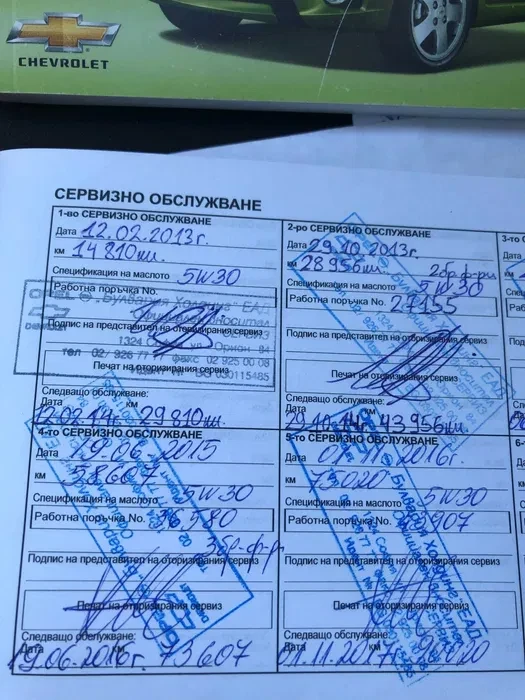 CHEVROLET
СЕРВИЗНО ОБСЛУЖВАНЕ
1-во СЕРВИЗНО ОБСЛУЖВАНЕ
Дата 12.02.2013г.
км 14 810км.
Спецификация на маслото 5W30
Работна поръчка No.
Подпис на представител на оторизирания сервиз
Печат на оторизирания сервиз
OPEL Булвария Холдинг ЕАД
София 1324
ул. Орион 84
тел 02/ 926 77
факс 02 925 00 08
BG 030115485
Следващо обслужване:
Дата км
12.02.14г. 29 810км.
2-ро СЕРВИЗНО ОБСЛУЖВАНЕ
Дата 29.10.2013г.
км 28 956км. 2бр.ф-ри
Спецификация на маслото 5W30
Работна поръчка No. 27155
Подпис на представител на оторизирания сервиз
Печат на оторизирания сервиз
Следващо обслужване:
Дата км
29.10.14г. 43 956км.
3-то
4-то СЕРВИЗНО ОБСЛУЖВАНЕ
Дата 19.06.2015
км 58607
Спецификация на маслото 5W30
Работна поръчка No. 36580
2бр.ф-ри
Подпис на представител на оторизирания сервиз
Печат на оторизирания сервиз
Следващо обслужване:
Дата км
19.06.2016г. 73607
5-то СЕРВИЗНО ОБСЛУЖВАНЕ
Дата 01.11.2016г
км 75020
Спецификация на маслото 5W30
Работна поръчка No.
Подпис на представител на оторизирания сервиз
Печат на оторизирания сервиз
Булвария Холдинг ЕАД
Следващо обслужване:
Дата км
01.11.2017г. 90020
6-